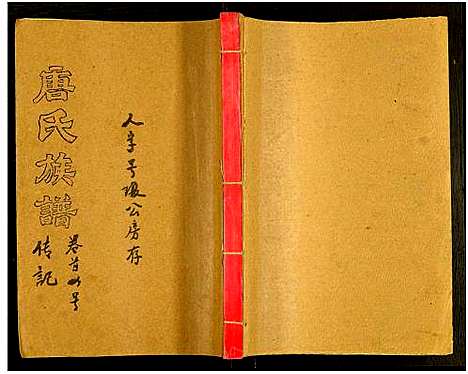 人字号璟公房存
唐氏族譜
卷首 号
传記